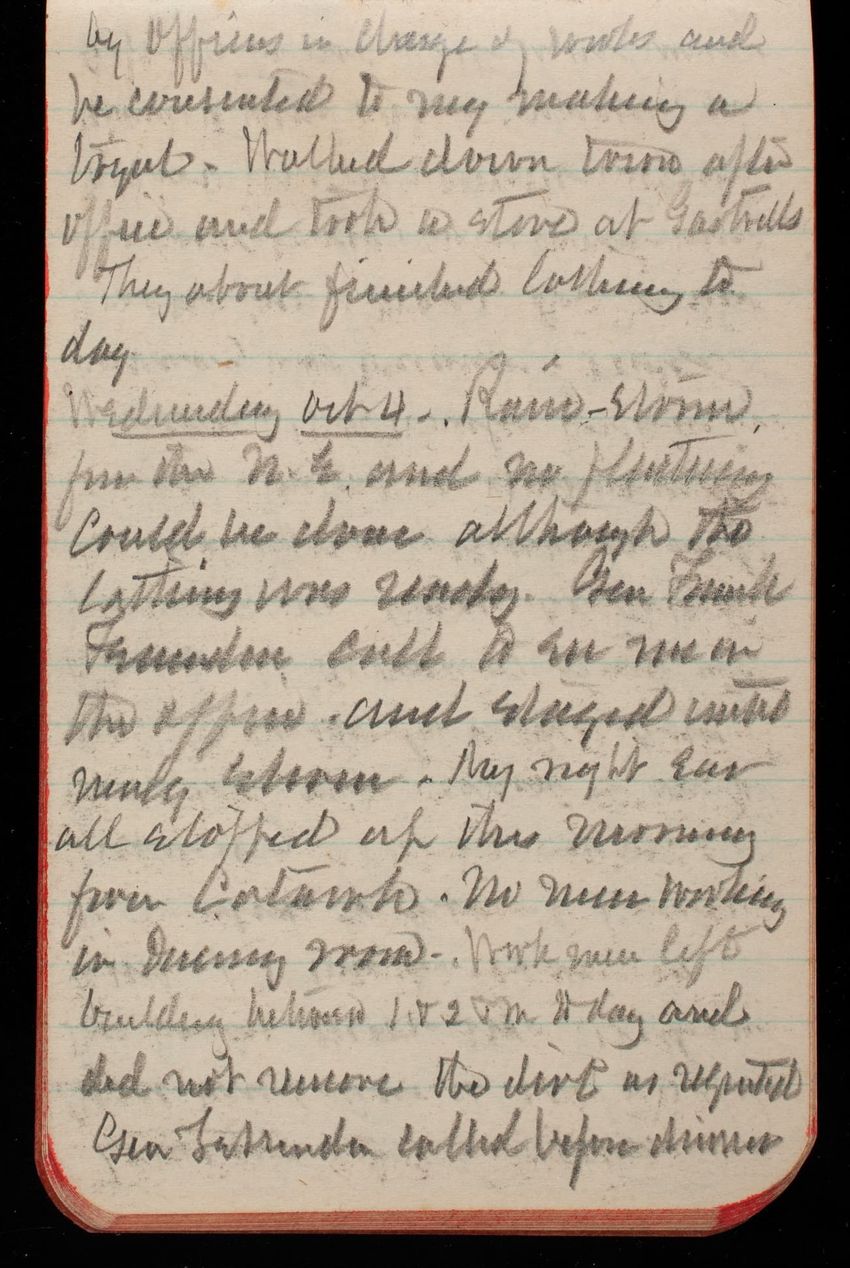 by Officers in charge of works and
he consented to my making a
. Walked down town after
office and took a stove at Gastrells
They about finished lathing to
day
Wednesday Oct 4 -. Rain-Storm
from the N.E. and no plastering
could be done although the
lathing was ready. Gen Frank
called to see me in
the office . and stayed until
nearly eleven . My right ear
all stopped up this morning
from Catarrh . No men working
in dining room -. Work men left
building between 1 & 2 P m to day and
did not remove the dirt as requested
Gen called before dinner